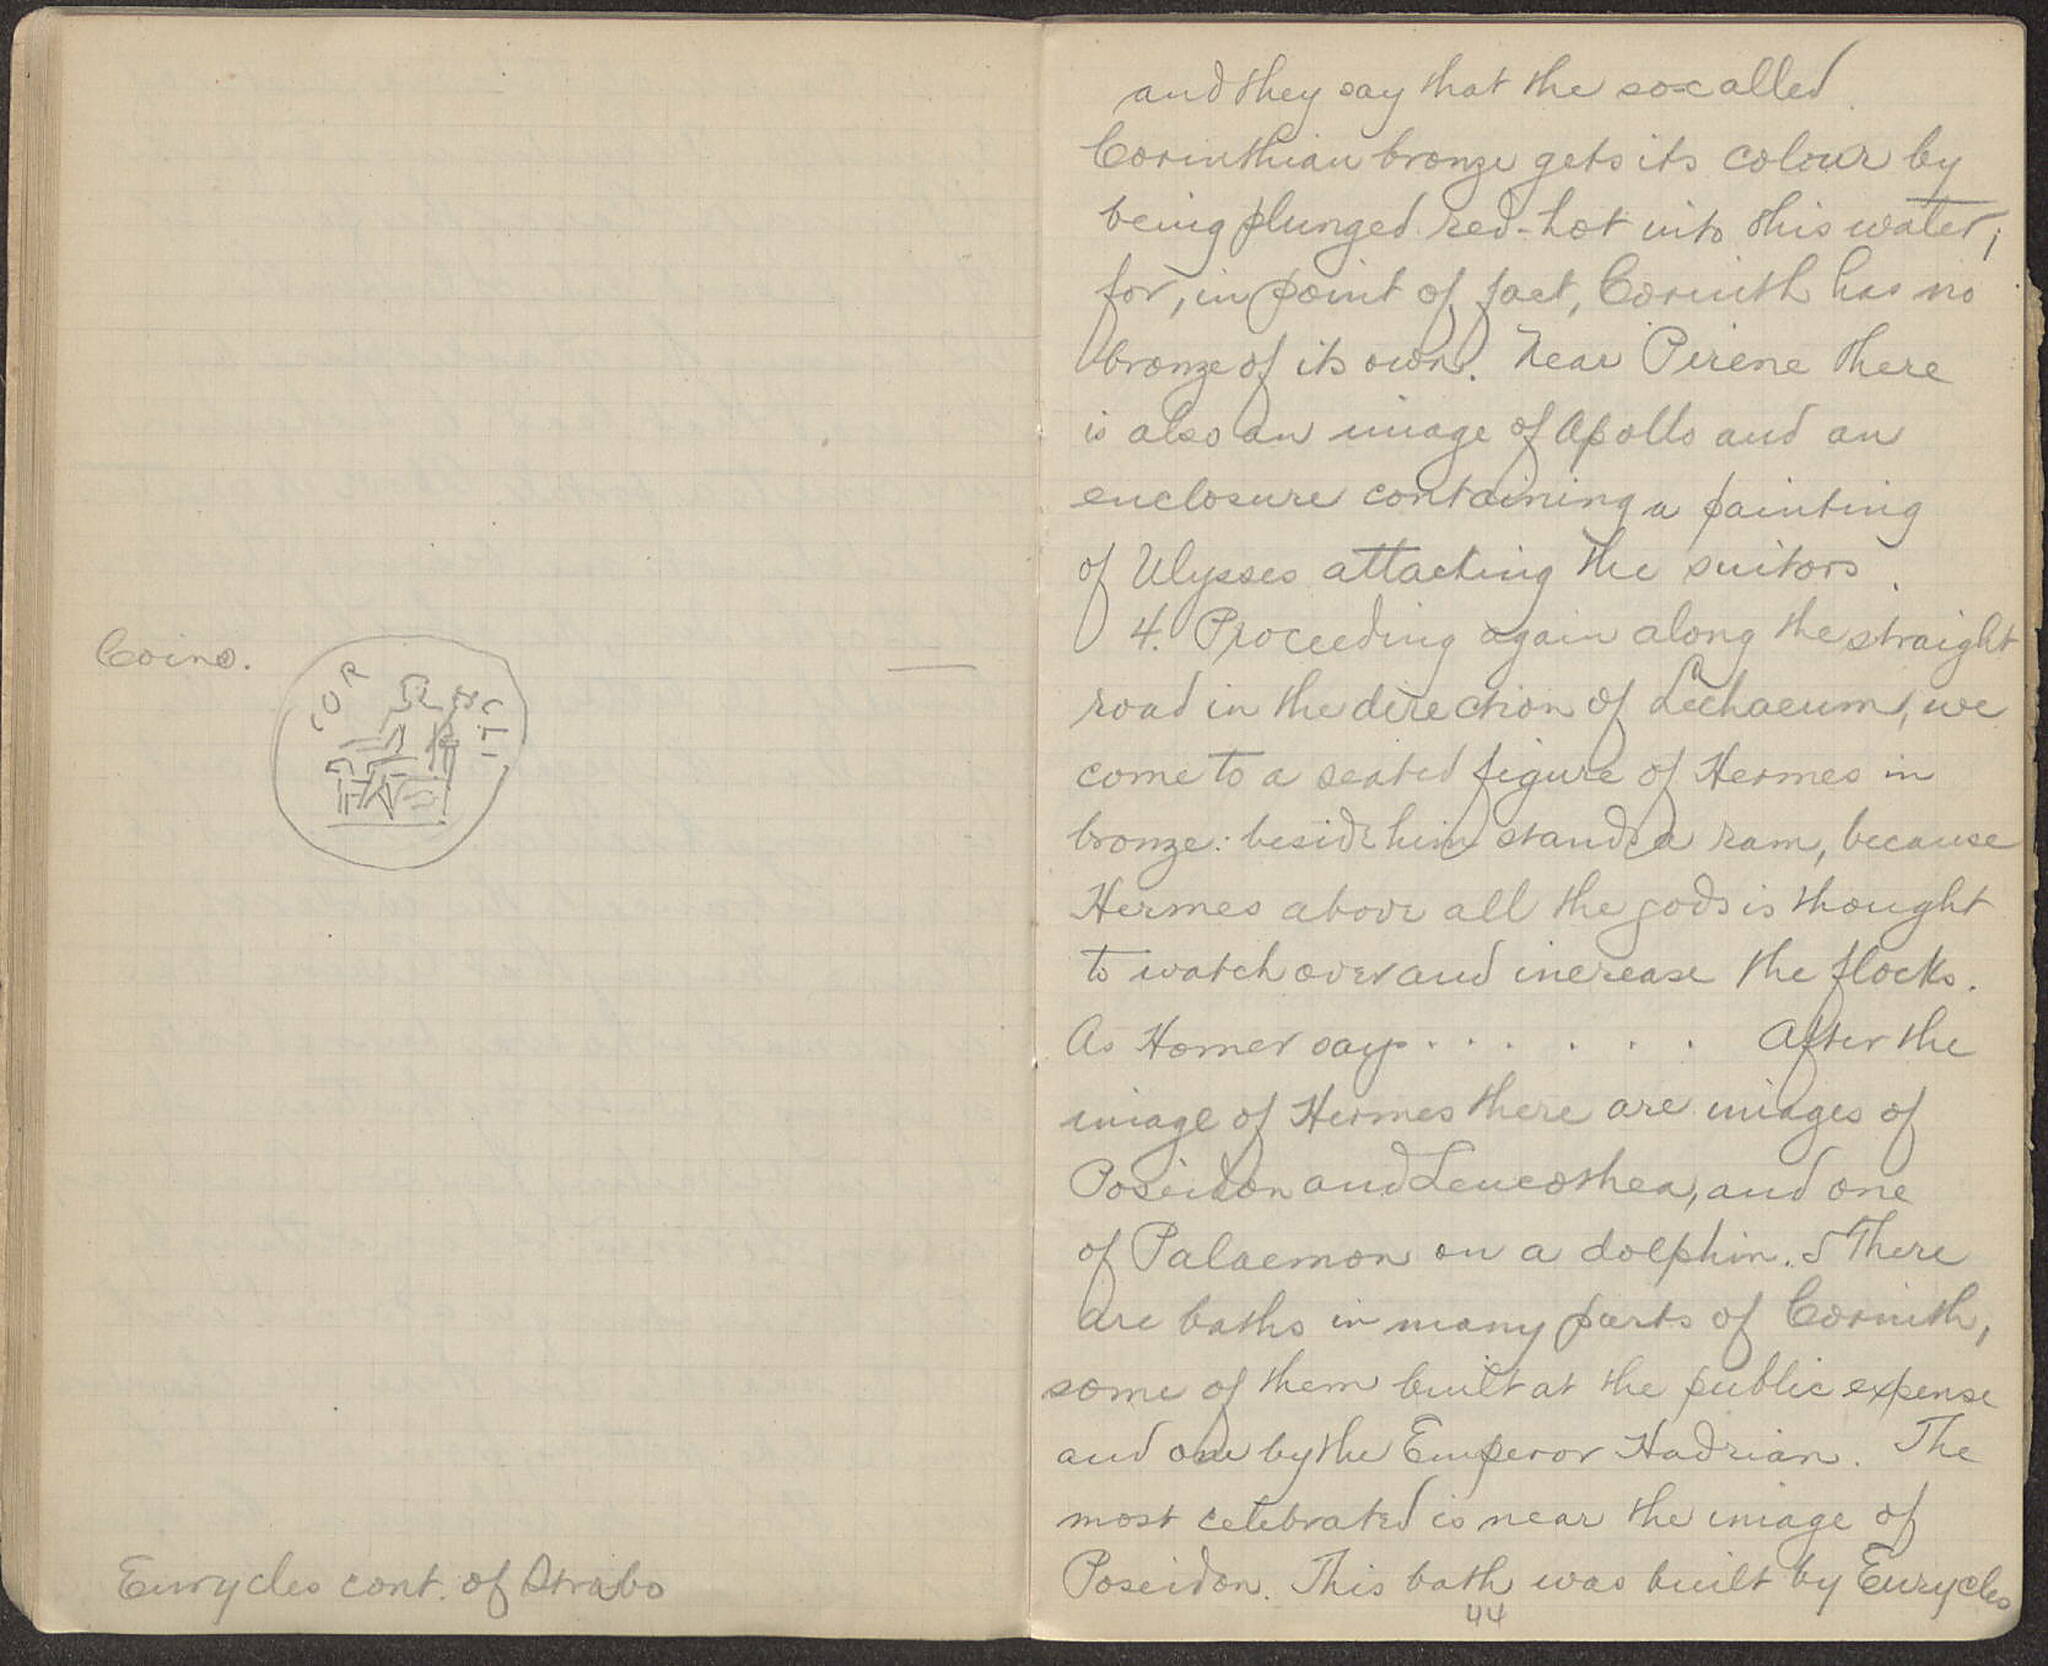 Coins.
COR
ITC
Eurycles cont. of Strabo
and they say that the so-called
Corinthian bronze gets its colour by
being plunged red-hot into this water;
for, in point of fact, Corinth has no
bronze of its own. Near Pirene there
is also an image of Apollo and an
enclosure containing a painting
of Ulysses attacking the suitors.
4. Proceeding again along the straight
road in the direction of Lechaeum, we
come to a seated figure of Hermes in
bronze: beside him stands a ram, because
Hermes above all the gods is thought
to watch over and increase the flocks.
As Homer says . . . . . . After the
image of Hermes there are images of
Poseidon and Leucothea, and one
of Palaemon on a dolphin. 5 There
are baths in many parts of Corinth,
some of them built at the public expense
and one by the Emperor Hadrian. The
most celebrated is near the image of
Poseidon. This bath was built by Eurycles
44